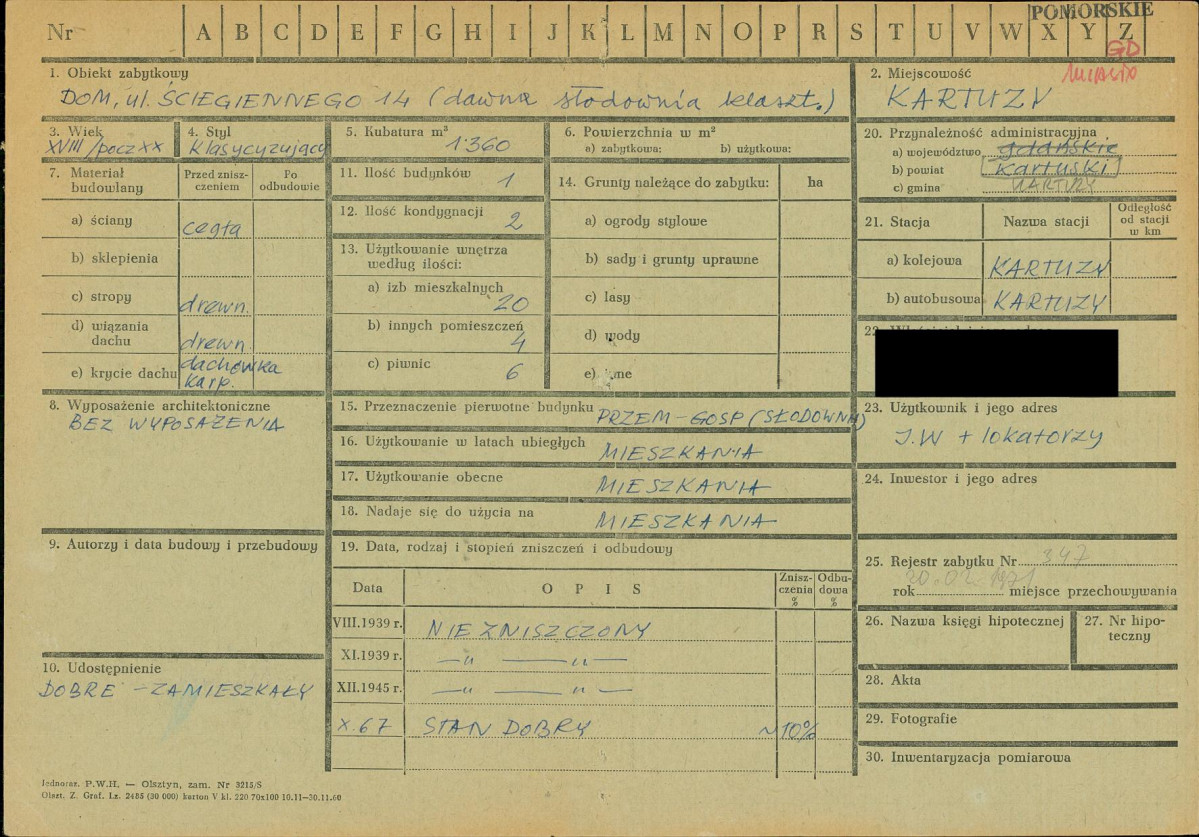 POMORSKIE
Nr A B C D E F G H I J K L M N O P R S T U V W X Y Z
GD
1. Obiekt zabytkowy
DOM, ul. ŚCIEGIENNEGO 14 (dawna słodownia klaszt.)
2. Miejscowość
KARTUZY
3. Wiek
XVIII/pocz XX
4. Styl
klasycyzujący
5. Kubatura m³
1360
6. Powierzchnia w m²
a) zabytkowa: b) użytkowa:
20. Przynależność administracyjna
a) województwo gdańskie
b) powiat kartuski
c) gmina KARTUZY
7. Materiał budowlany
Przed zniszczeniem
Po odbudowie
a) ściany cegła
b) sklepienia
c) stropy drewn.
d) wiązania dachu drewn.
e) krycie dachu dachówka karp.
11. Ilość budynków 1
12. Ilość kondygnacji 2
13. Użytkowanie wnętrza
według ilości:
a) izb mieszkalnych 20
b) innych pomieszczeń 4
c) piwnic 6
14. Grunty należące do zabytku: ha
a) ogrody stylowe
b) sady i grunty uprawne
c) lasy
d) wody
e) inne
21. Stacja Nazwa stacji Odległość od stacji w km
a) kolejowa KARTUZY
b) autobusowa KARTUZY
22.
8. Wyposażenie architektoniczne
BEZ WYPOSAŻENIA
15. Przeznaczenie pierwotne budynku PRZEM-GOSP (SŁODOWNIA)
16. Użytkowanie w latach ubiegłych
MIESZKANIA
17. Użytkowanie obecne
MIESZKANIA
18. Nadaje się do użycia na
MIESZKANIA
23. Użytkownik i jego adres
J.W + lokatorzy
24. Inwestor i jego adres
9. Autorzy i data budowy i przebudowy
19. Data, rodzaj i stopień zniszczeń i odbudowy
Data OPIS Zniszczenia % Odbudowa %
VIII.1939 r. NIE ZNISZCZONY
XI.1939 r. —"— —"—
XII.1945 r. —"— —"—
X.67 STAN DOBRY ~10%
10. Udostępnienie
DOBRE - ZAMIESZKAŁY
25. Rejestr zabytku Nr 397
rok 20.02.1971 miejsce przechowywania
26. Nazwa księgi hipotecznej
27. Nr hipoteczny
28. Akta
29. Fotografie
30. Inwentaryzacja pomiarowa
Jednoraz. P.W.H. — Olsztyn, zam. Nr 3215/S
Olszt. Z. Graf. Lz. 2485 (30 000) karton V kl. 220 70x100 10.11—30.11.60